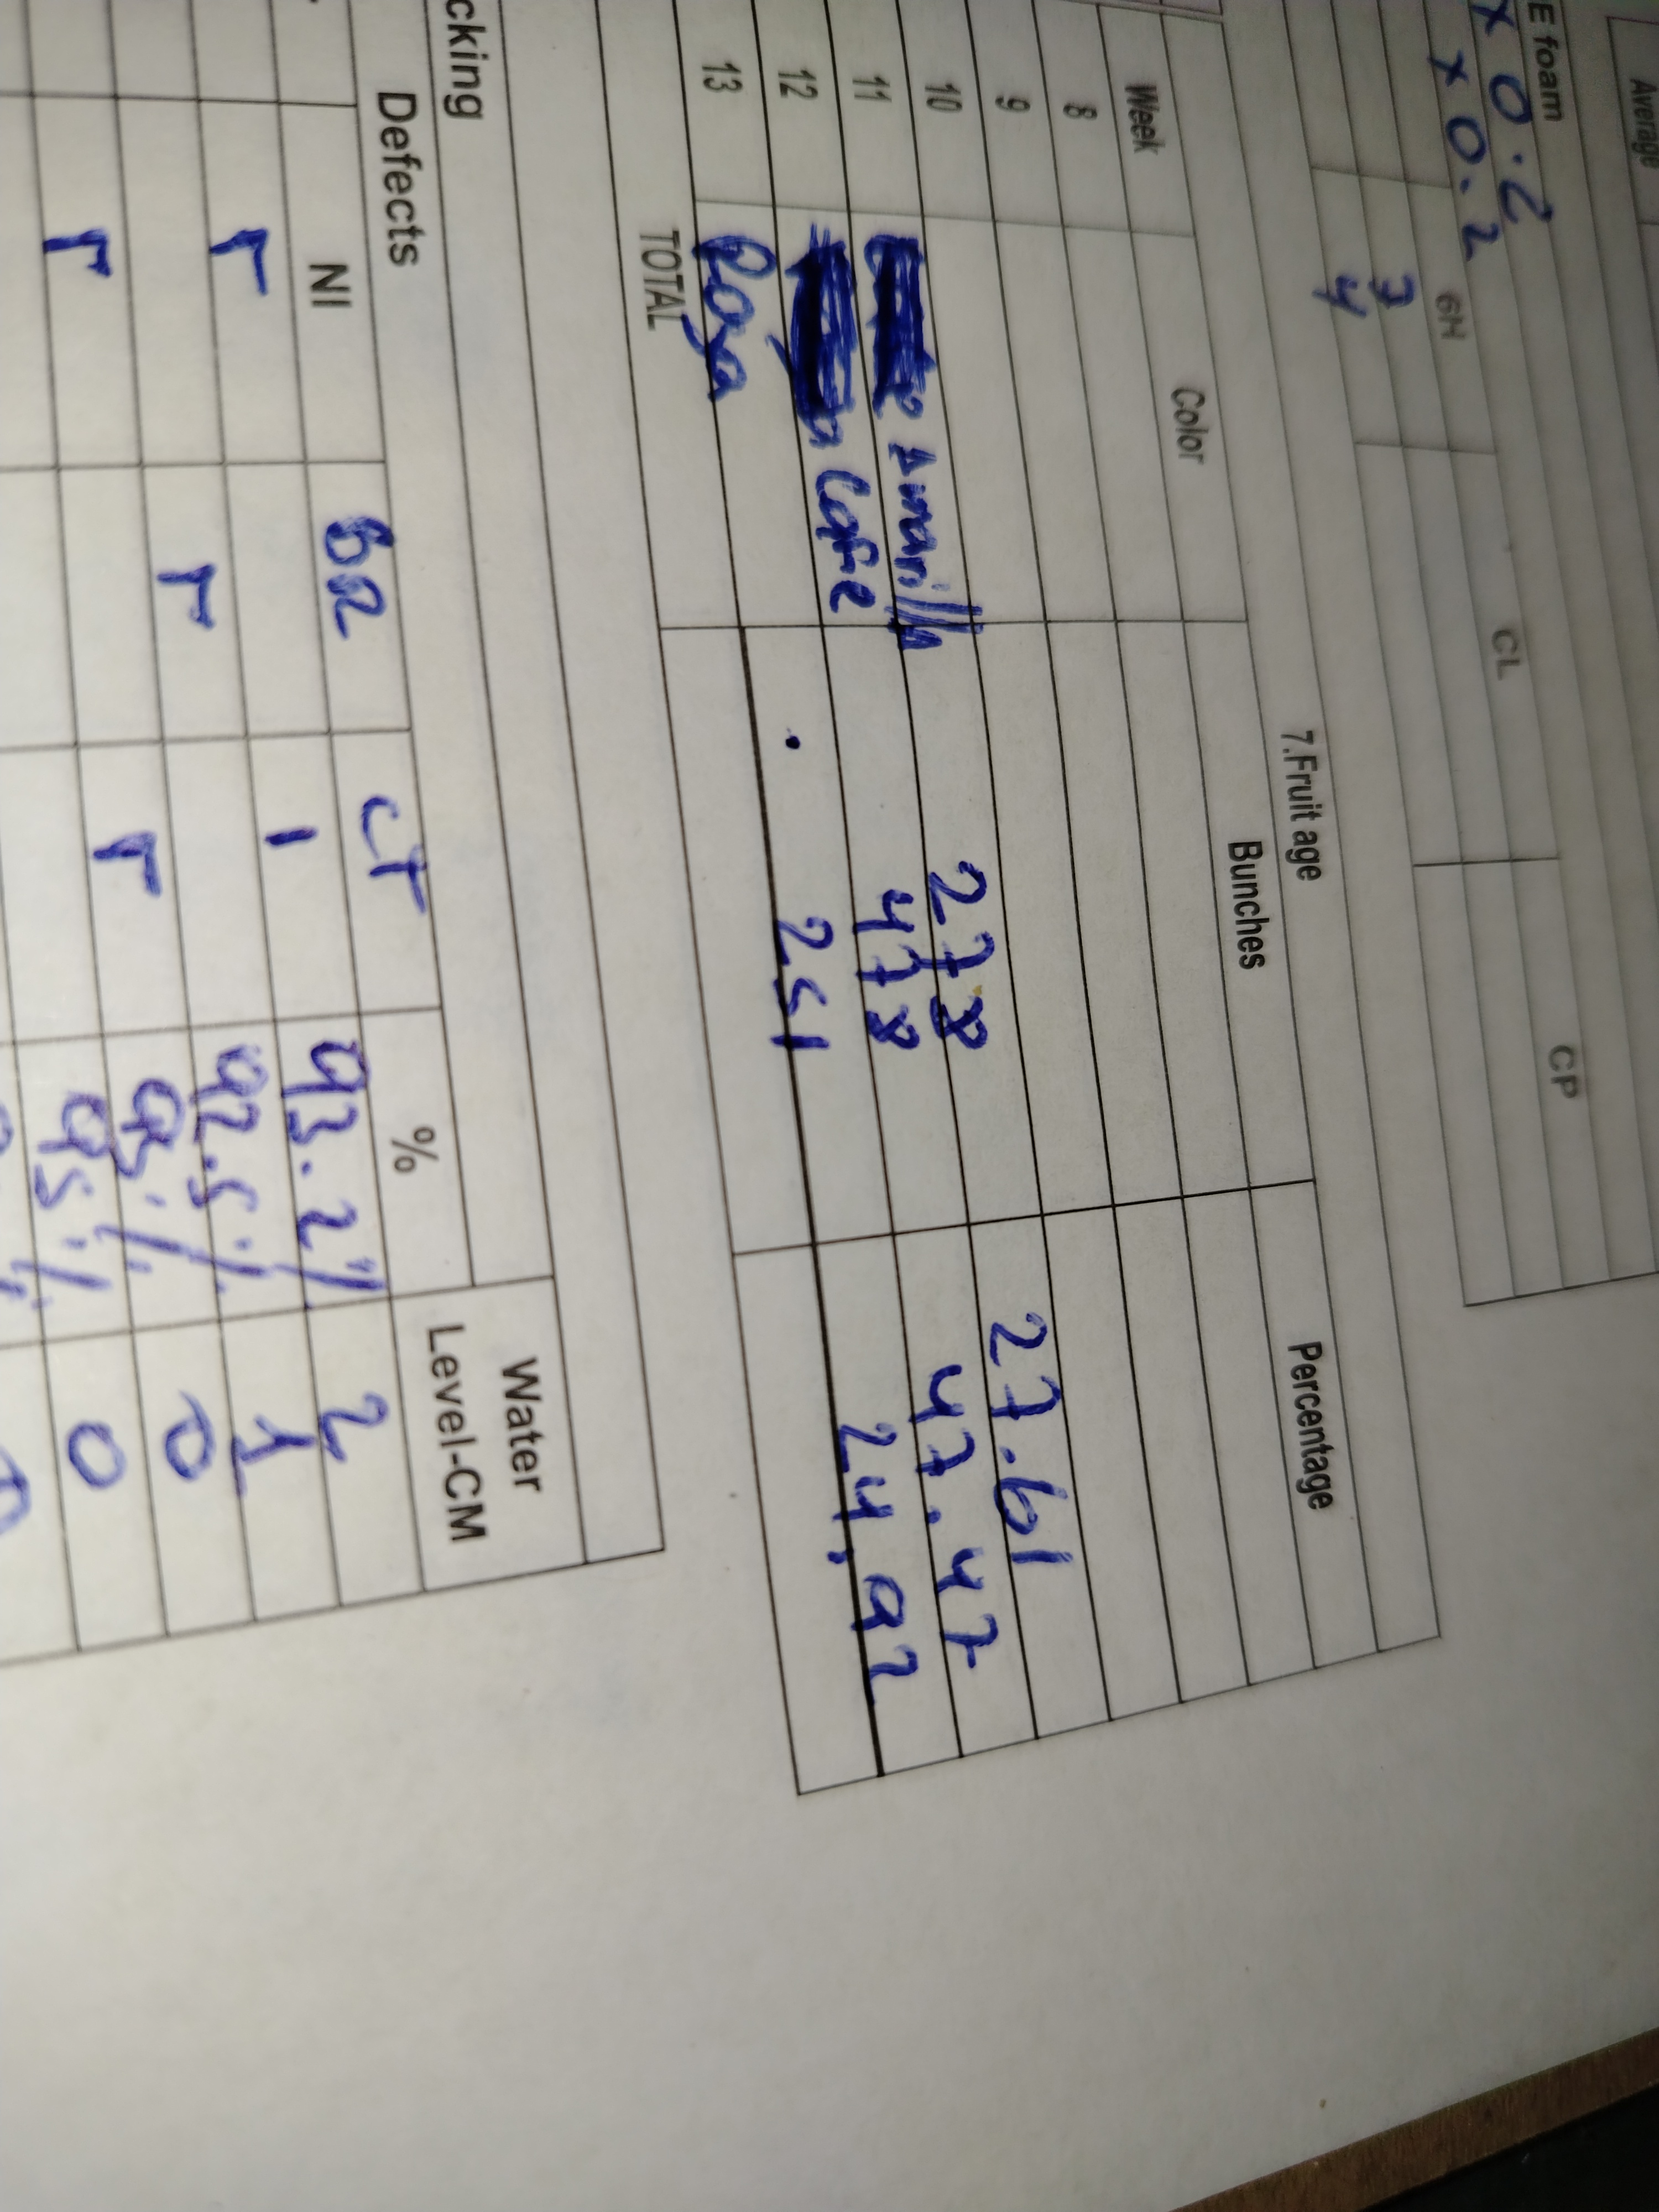 Average
E foam
x 0.2
x 0.2
6H CL CP
7
4
7.Fruit age
Week Color Bunches Percentage
8
9
10
11 Amarilla 278 27.61
12 Cafe 478 47.47
13 Roja 251 24,92
TOTAL
cking
Defects
Water
Level-CM
NI BR CT %
1 93.2% 2
92.5% 1
95% 0
95% 0